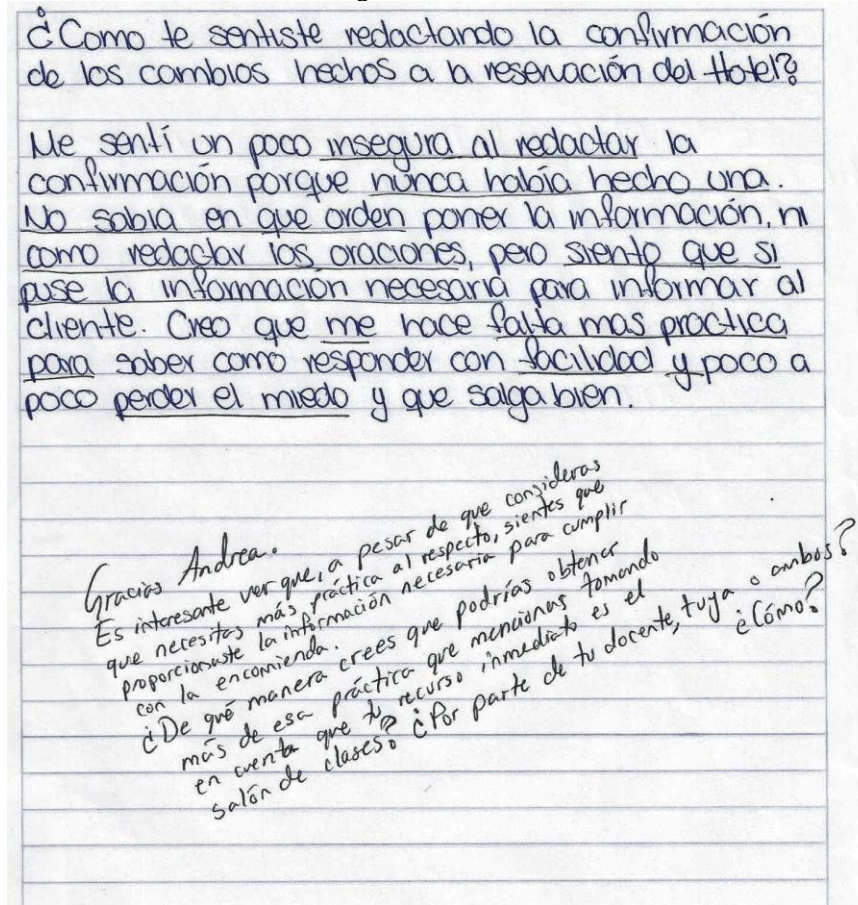 ¿Como te sentiste redactando la confirmación
de los cambios hechos a la reservación del Hotel?
Me sentí un poco insegura al redactar la
confirmación porque nunca había hecho una.
No sabia en que orden poner la información, ni
como redactar las oraciones, pero siento que si
puse la información necesaria para informar al
cliente. Creo que me hace falta mas practica
para saber como responder con facilidad y poco a
poco perder el miedo y que salga bien.
Gracias Andrea.
Es interesante ver que, a pesar de que consideras
que necesitas más práctica al respecto, sientes que
proporcionaste la información necesaria para cumplir
con la encomienda.
¿De qué manera crees que podrías obtener
más de esa práctica que mencionas tomando
en cuenta que tu recurso inmediato es el
salón de clases? ¿Por parte de tu docente, tuya o ambos?
¿Cómo?